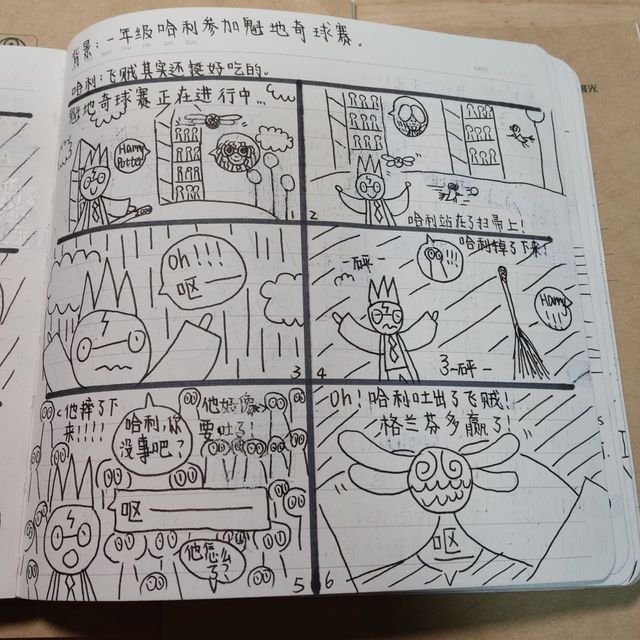 背景：一年级哈利参加魁地奇球赛.
THU FRI SAT SUN
DATE
哈利：飞贼其实还挺好吃的.
魁地奇球赛正在进行中…
Harry
Potter
1
2
哈利站在了扫帚上！
Oh!!!
呕——
3
哈利掉了下来！
一砰一
!!!
Harry
!!!
3—砰—
4
他摔了下
来!!!!
哈利，你
没事吧？
他好像
要吐了！
呕————
他怎么
了？
5
Oh！哈利吐出了飞贼！
格兰芬多赢了！
呕
6